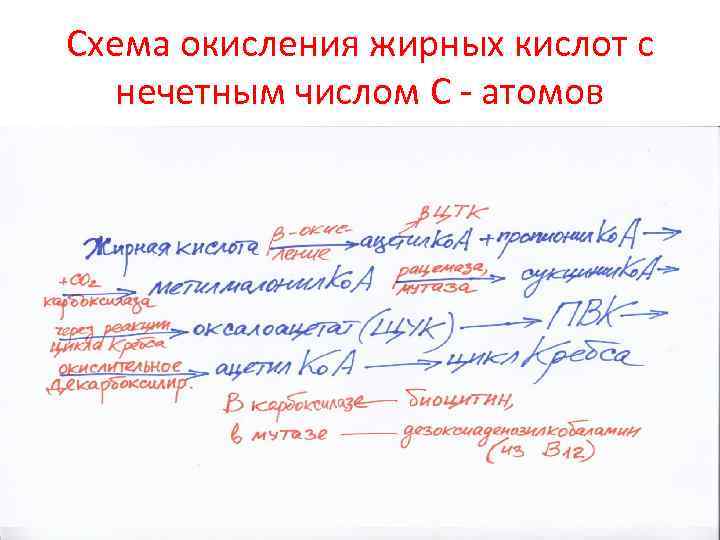 Схема окисления жирных кислот с
нечетным числом С - атомов
в ЦТК
Жирная кислота β-окисление → ацетил КоА + пропионил КоА →
+CO2 карбоксилаза → метилмалонил КоА рацемаза, мутаза → сукцинил КоА →
через реакции цикла Кребса → оксалоацетат (ЩУК) → ПВК →
окислительное декарбоксилир. → ацетил КоА → цикл Кребса
В карбоксилазе — биоцитин,
в мутазе — дезоксиаденозилкобаламин
(из В12)